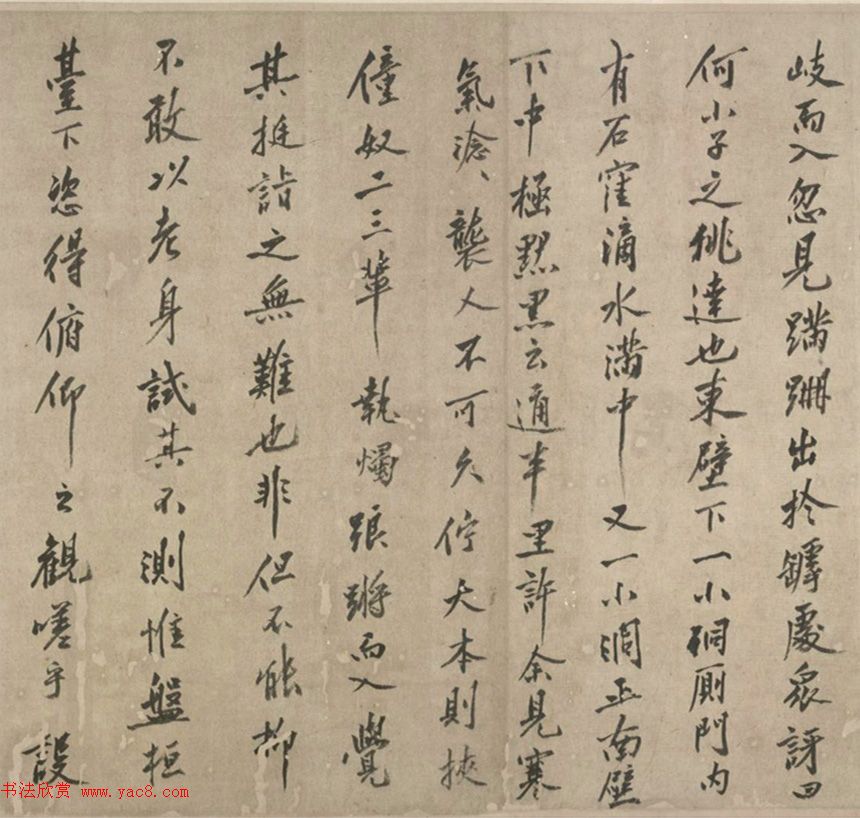 岐而入忽見蹣跚出於罅處眾訝曰
何小子之挑達也東壁下一小洞廁門內
有石窪滴水滿中又一小洞正南壁
下中極黑云通半里許余見寒
氣滄〻襲人不可久佇大本則挾
僮奴二三輩執燭踉蹡而入覺
其挺詣之無難也非但不能抑
不敢以老身試其不測惟盤桓
臺下恣得俯仰之觀嗟乎設
书法欣赏 www.yac8.com